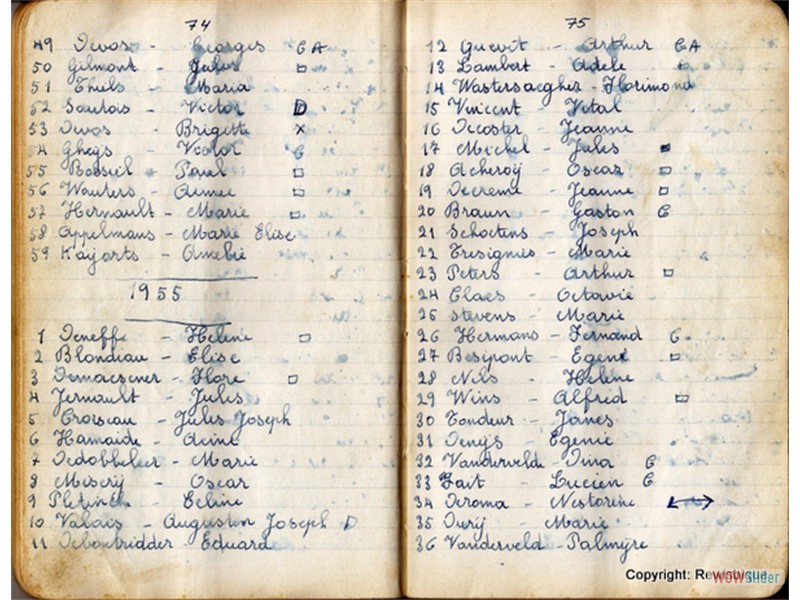 74
49 Devos - Georges C A
50 Gilmont - Jules □
51 Thiels - Maria
52 Sautois - Victor D
53 Devos - Brigette x
54 Gheys - Victor C
55 Bosseil - Paul □
56 Wauters - Aimée □
57 Hernault - Marie □
58 Appelmans - Marie Elise
59 Kayaerts - Amelie
1955
1 Deneffe - Helene □
2 Blondiau - Elise
3 Demaesener - Flore □
4 Jernault - Jules
5 Croiseau - Jules Joseph
6 Hamaide - Acine
7 Dedobbeleer - Marie
8 Miserij - Oscar
9 Pletinck - Celine
10 Valais - Auguston Joseph D
11 Debontridder - Eduard
75
12 Quevit - Arthur C A
13 Lambert - Adele C
14 Wastersaegher - Florimond
15 Vincent - Vital
16 Decoster - Jeanne
17 Michel - Jules ■
18 Acheroij - Oscar □
19 Decreme - Jeanne □
20 Braun - Gaston C
21 Schoetens - Joseph
22 Tresignies - Marie
23 Peters - Arthur □
24 Claes - Octavie
25 Stevens - Marie
26 Hermans - Fernand C
27 Besspont - Egene □
28 Nils - Helene
29 Wins - Alfred □
30 Tondeur - Janes
31 Denys - Egenie
32 Vandervelde - Dina C
33 Fait - Lucien C
34 Deroma - Nestorine ↔
35 Durij - Marie
36 Vanderveld - Palmyre
Copyright: Rewisbique
WOWSlider